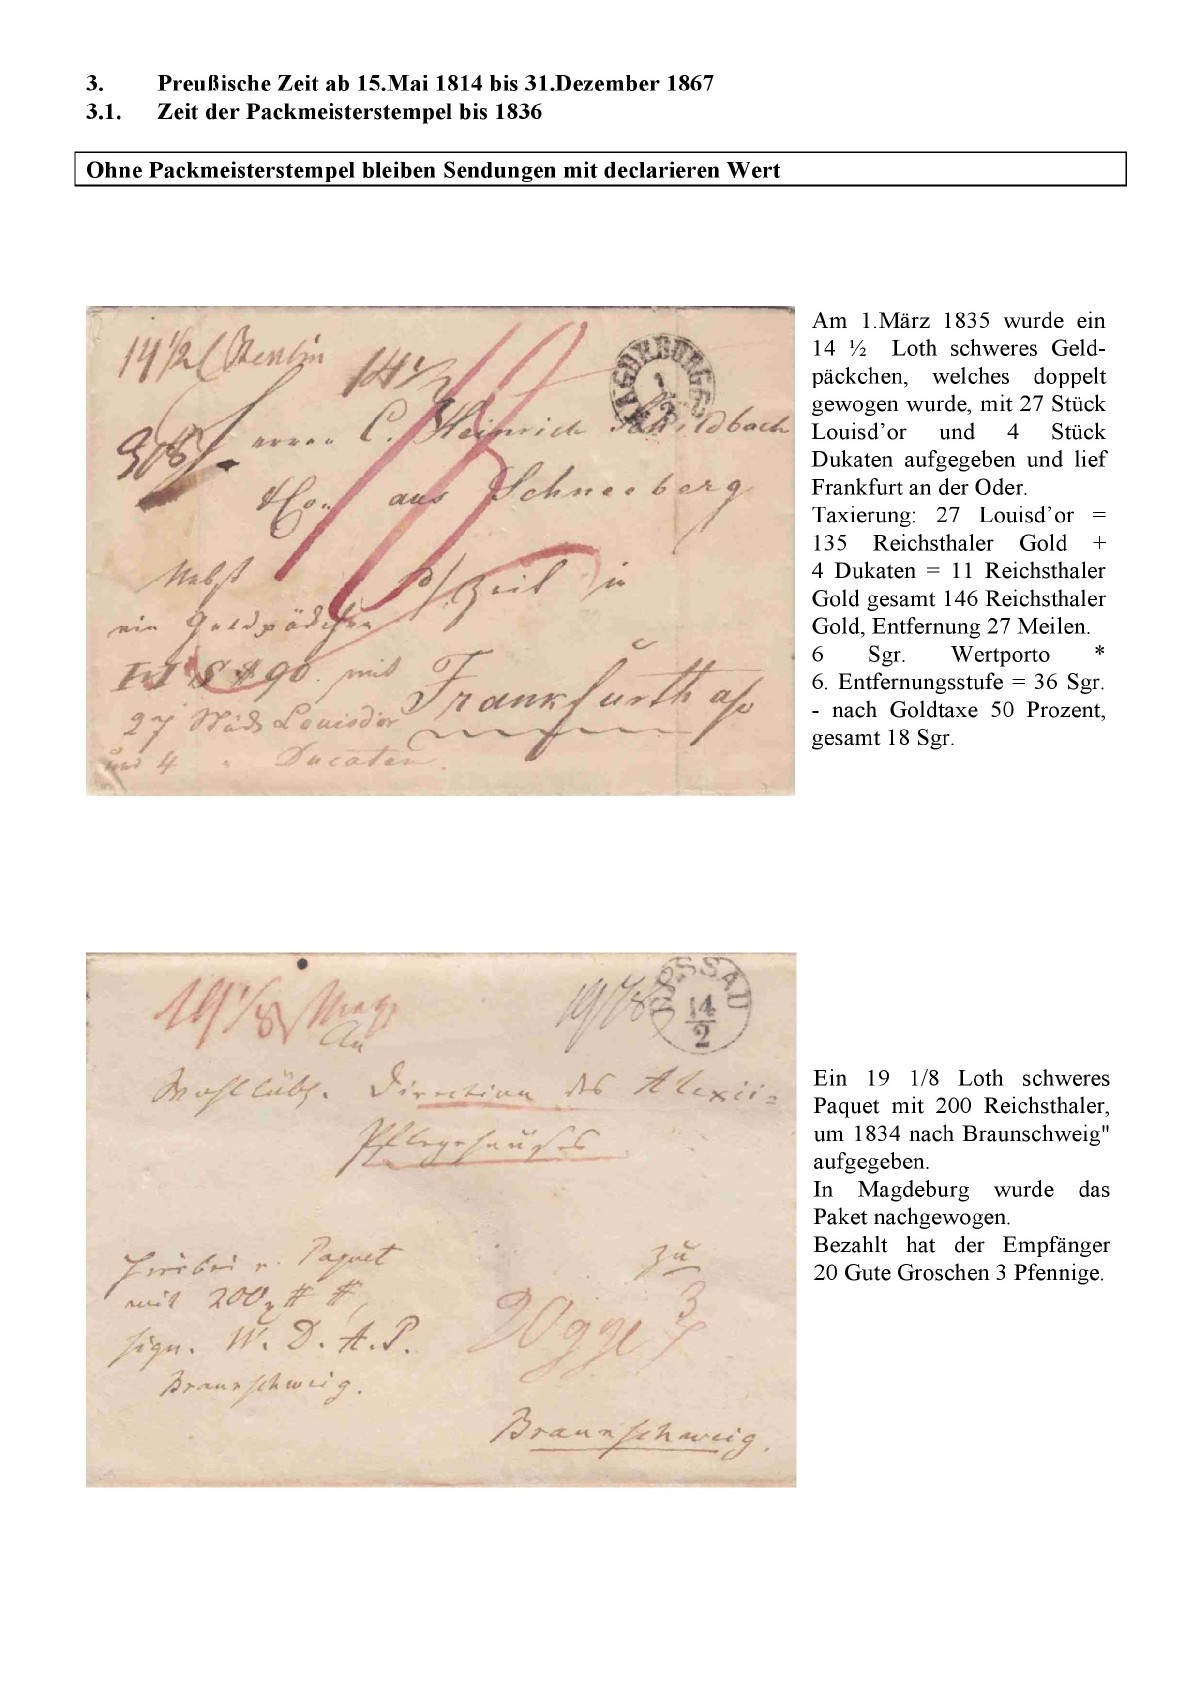 3. Preußische Zeit ab 15.Mai 1814 bis 31.Dezember 1867
3.1. Zeit der Packmeisterstempel bis 1836
Ohne Packmeisterstempel bleiben Sendungen mit declarieren Wert
14 1/2 Berlin
14 1/2
MAGDEBURG
1/3
308
Herren C. Heinrich Schildbach
& Co. aus Schneeberg
Nebst
p/ Zeit in
ein Geldpäckchen
# 90. mit
Frankfurth a/o
27 Stück Louisdor
und 4 " Ducaten.
Am 1.März 1835 wurde ein
14 ½ Loth schweres Geld-
päckchen, welches doppelt
gewogen wurde, mit 27 Stück
Louisd’or und 4 Stück
Dukaten aufgegeben und lief
Frankfurt an der Oder.
Taxierung: 27 Louisd’or =
135 Reichsthaler Gold +
4 Dukaten = 11 Reichsthaler
Gold gesamt 146 Reichsthaler
Gold, Entfernung 27 Meilen.
6 Sgr. Wertporto *
6. Entfernungsstufe = 36 Sgr.
- nach Goldtaxe 50 Prozent,
gesamt 18 Sgr.
19 1/8 Mag
19 1/8
DESSAU
14
2
An
Wohllöbl. Direction des Alexii-
Pflegehauses
Hierbei e. Paquet
mit 200
sign. W. D. A. P.
Braunschweig.
zu
20 gge 3
Braunschweig.
Ein 19 1/8 Loth schweres
Paquet mit 200 Reichsthaler,
um 1834 nach Braunschweig"
aufgegeben.
In Magdeburg wurde das
Paket nachgewogen.
Bezahlt hat der Empfänger
20 Gute Groschen 3 Pfennige.